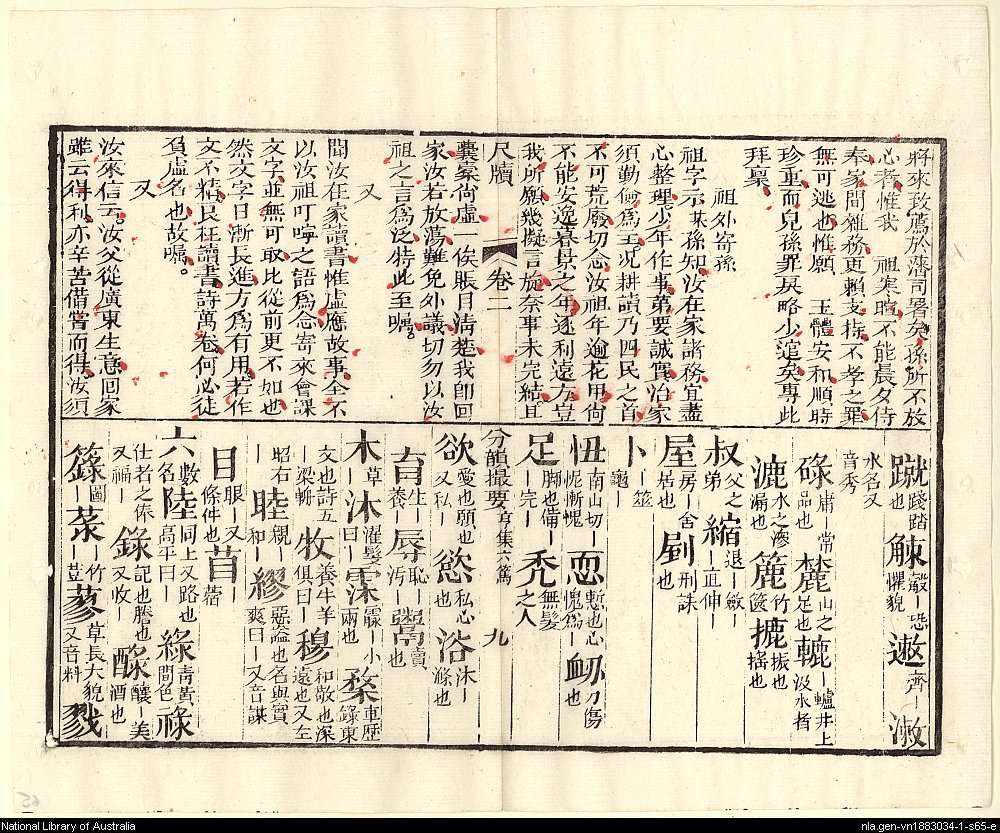 將來致薦於藩司署矣孫所不放
心者惟我　祖寒暄不能晨夕侍
奉家間雜務更賴支持不孝之罪
無可逃也惟願　玉體安和順時
珍重而兒孫罪戾略少逭矣專此
拜稟
祖外寄孫
祖字示某孫知汝在家諸務宜盡
心整理少年作事第要誠實治家
須勤儉為主況耕讀乃四民之首
不可荒廢切念汝祖年逾花甲尚
不能安逸暮景之年逐利遠方豈
我所願幾擬言旋奈事未完結且
尺牘　卷二
囊橐尚虛一俟賬目清楚我即回
家汝若放蕩難免外議切勿以汝
祖之言為泛特此至囑。
又
聞汝在家讀書惟虛應故事全不
以汝祖叮嚀之語為念寄來會課
文字並無可取比從前更不如也
然文字日漸長進方為有用若作
文不精民枉讀書詩萬卷何必徒
負虛名也故囑。
又
汝來信云。汝父從廣東生意回家
雖云得利亦辛苦備嘗而得。汝須
蹴踐踏也　觫觳-恐懼貌　遬齊-　漱
水名又音秀
碌庸-常品也　麓山之足也　轆-轤井上汲水者
漉水之滲漏也　簏竹篋　摝振也搖也
叔父之弟　縮退-斂-直伸-
屋房-舍居也　劉刑誅也
卜-筮龜-
忸南山切-怩慚愧　恧慙也心愧為-　衄刀傷也
足脚也備-完-　禿無髮之人
分韻撮要　亨集六篤　九
欲愛也願也又私-　慾私心也　浴沐-滌也
育生-養-　辱恥-污-　鬻賣也
木草-　沐濯髮曰-　霂霢-小雨也　楘車歷錄東
文也詩五-梁輈　牧養牛羊俱曰-　穆和敬也深遠也又左
昭右-　睦親-和-　繆惡謚也名與實爽曰-又音謀
目眼-又條件也　苜-蓿
六數名　陸同上又路也高平曰-　綠青黃間色　祿
仕者之俸又福-　錄記也謄也又收-　醁釀-美酒也
籙圖-　菉-竹-荳　蓼草長大貌又音料　戮
National Library of Australia
nla.gen-vn1883034-1-s65-e